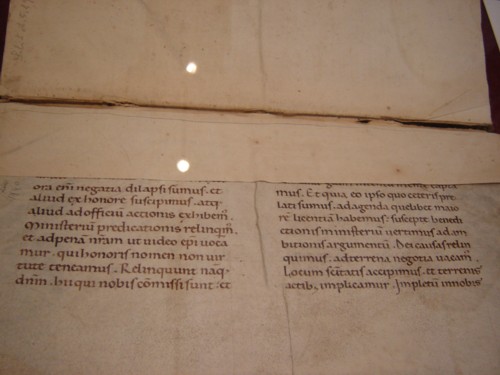 ora em̄ negatia dilapsi sumus. et
aliud ex honore suscipimus. atq̄
aliud adofficiū actionis exhibem̄.
Ministeriū predicationis relinqm̄.
et adpenā nr̄am ut video epi voca
mur. qui honoris nomen non vir
tute teneamus. Relinquunt naq̄
dnm̄. hii qui nobis cōmissi sunt: et
mus. Et quia eo ipso quo ceteris pre
lati sumus. adagenda quelibet maio
rē licentiā habemus: suscepte benedi
ctionis ministeriū vertimus adam
bitionis argumentū. Dei causas relin
quimus. adterrena negotia vacam̄.
Locum sc̄itatis accipimus. et terrenis
actib; implicamur. Impletū innobis